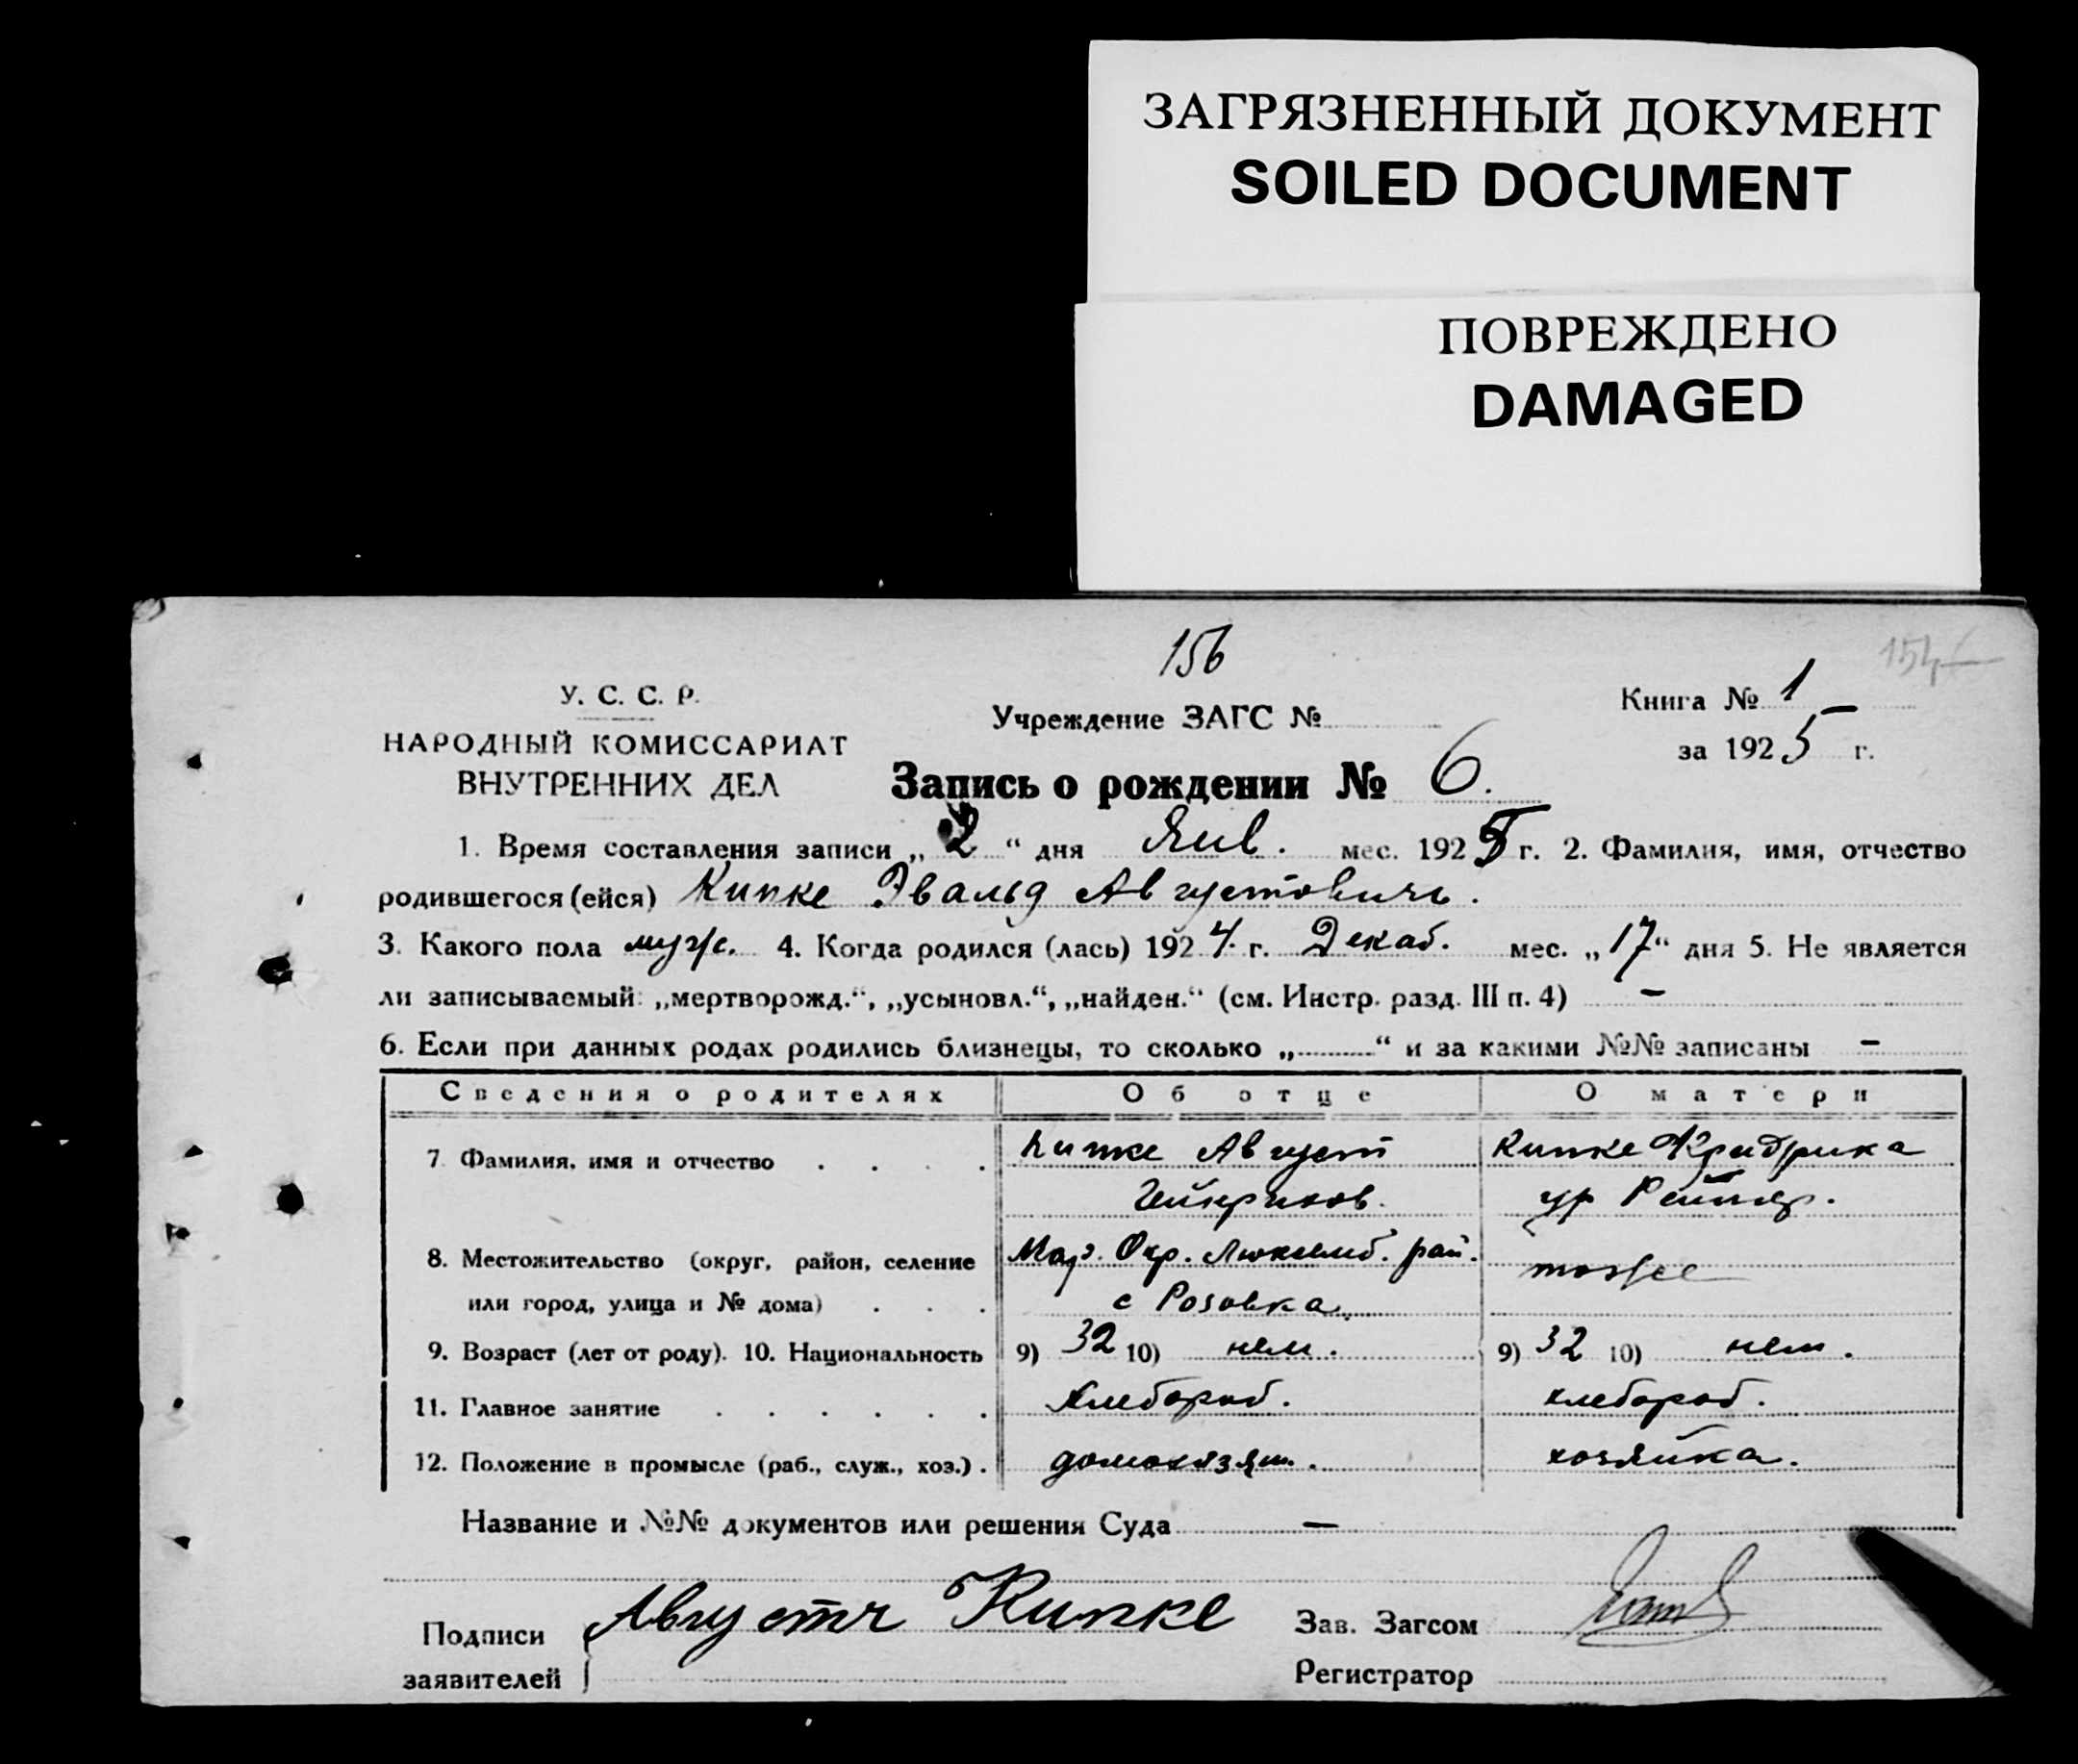 ЗАГРЯЗНЕННЫЙ ДОКУМЕНТ
SOILED DOCUMENT
ПОВРЕЖДЕНО
DAMAGED
156
У. С. С. Р.
НАРОДНЫЙ КОМИССАРИАТ
ВНУТРЕННИХ ДЕЛ
Учреждение ЗАГС №
Книга № 1
за 1925 г.
Запись о рождении № 6.
1. Время составления записи „ 2 “ дня Янв. мес. 1925 г. 2. Фамилия, имя, отчество
родившегося (ейся) Кипке Эвальд Августовичъ.
3. Какого пола муж. 4. Когда родился (лась) 1924 г. Декаб. мес. „17“ дня 5. Не является
ли записываемый: „мертворожд.“, „усыновл.“, „найден.“ (см. Инстр. разд. III п. 4) —
6. Если при данных родах родились близнецы, то сколько „..........“ и за какими №№ записаны —
Сведения о родителях Об отце О матери
7. Фамилия, имя и отчество . . . . Кипке Август Кипке Фридрика
Гейнрихов. ур
8. Местожительство (округ, район, селение Мар. Окр. Люксемб. рай. тоже
или город, улица и № дома) . . . с Розовка
9. Возраст (лет от роду). 10. Национальность 9) 32 10) нем. 9) 32 10) нем.
11. Главное занятие . . . . . . Хлебороб. хлебороб.
12. Положение в промысле (раб., служ., хоз.) . домохозяин. хозяйка.
Название и №№ документов или решения Суда —
Подписи Августъ Кипке Зав. Загсом
заявителей Регистратор